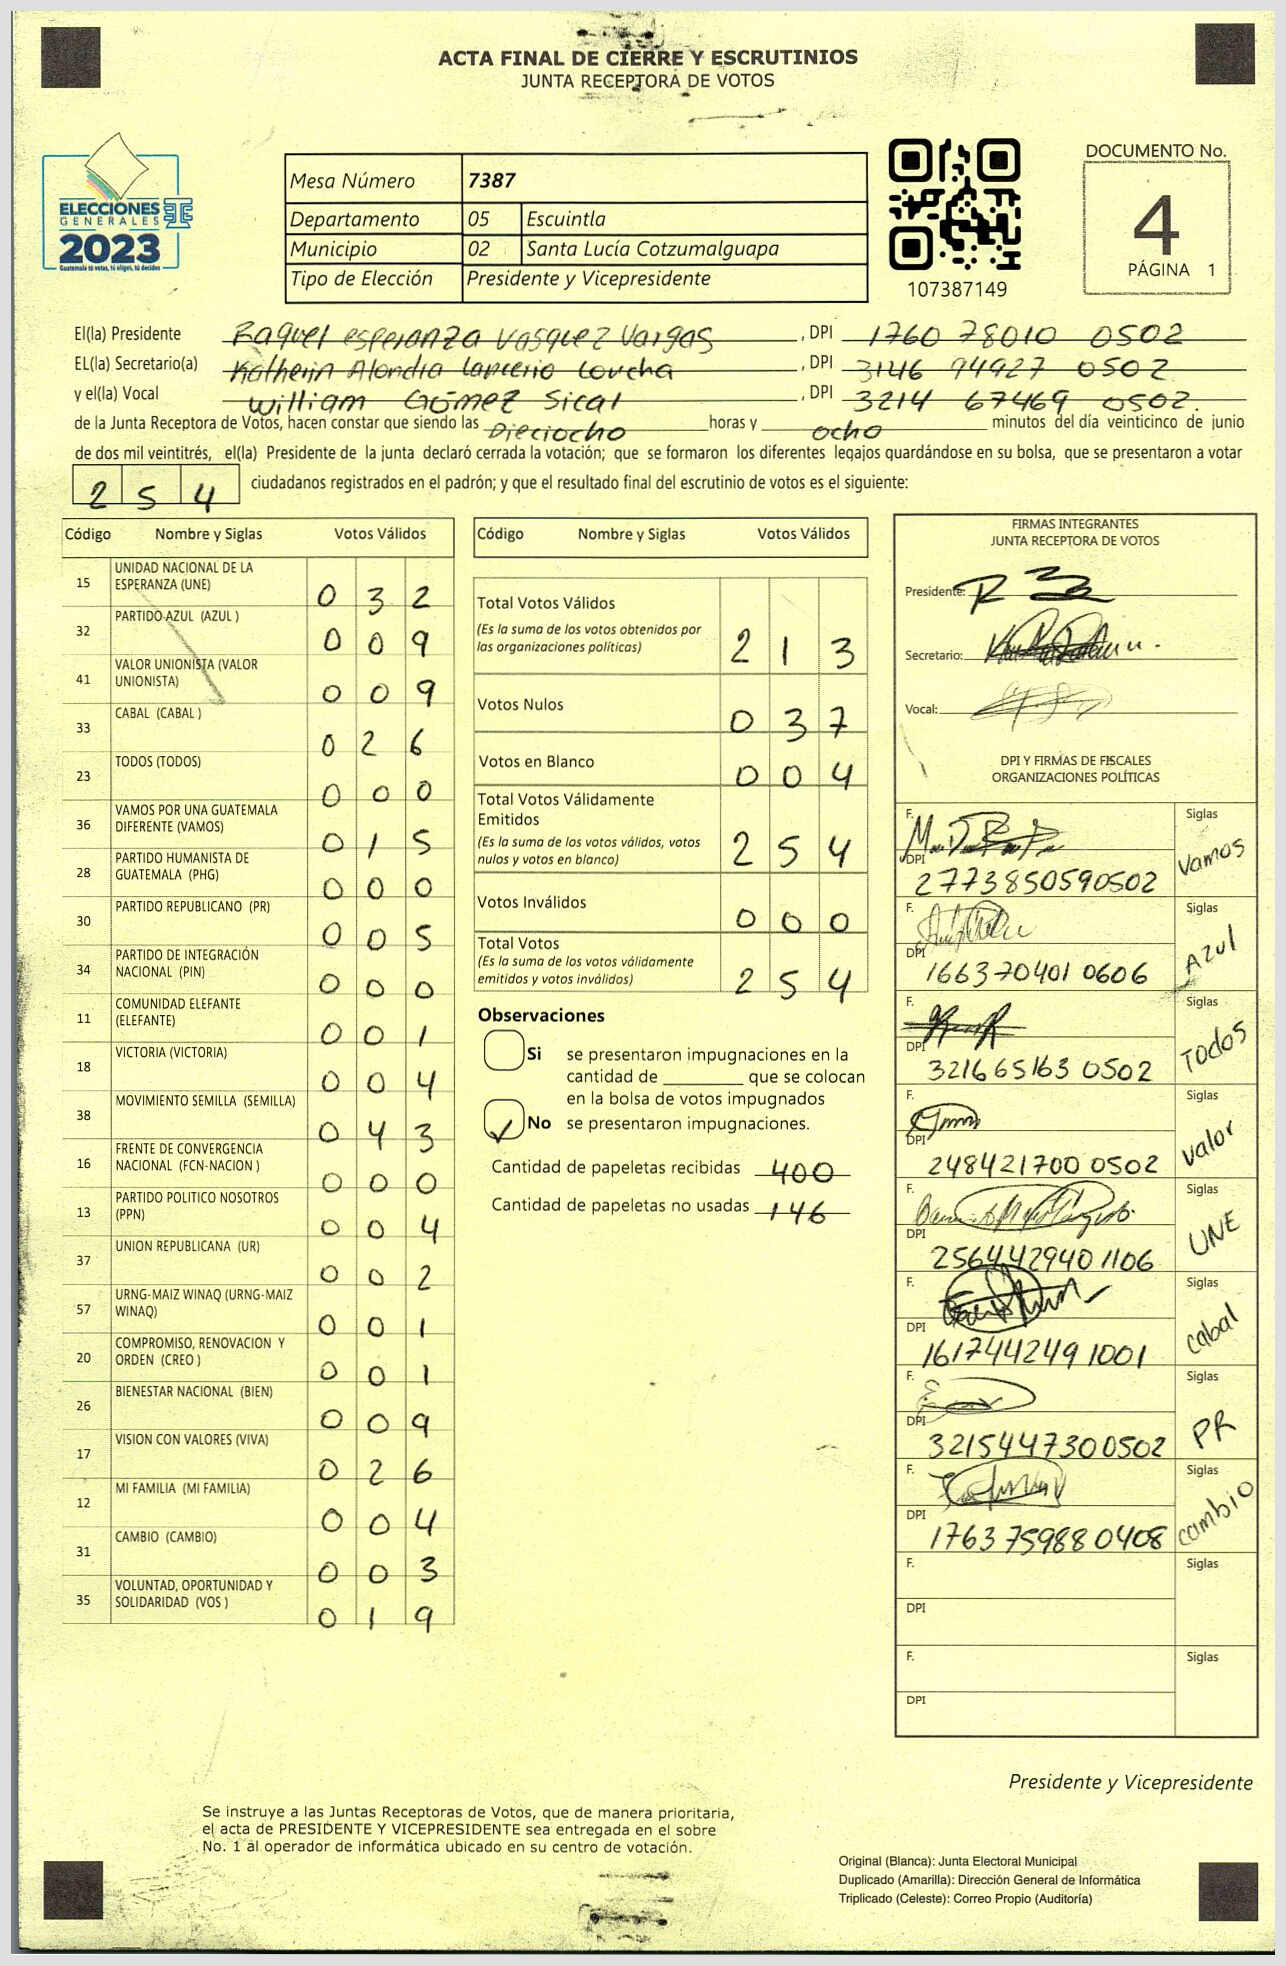 ACTA FINAL DE CIERRE Y ESCRUTINIOS
JUNTA RECEPTORA DE VOTOS
ELECCIONES
GENERALES
2023
Guatemala tú votas, tú eliges, tú decides
Mesa Número 7387
Departamento 05 Escuintla
Municipio 02 Santa Lucía Cotzumalguapa
Tipo de Elección Presidente y Vicepresidente
107387149
DOCUMENTO No.
4
PÁGINA 1
El(la) Presidente Raquel esperanza Vasquez Vargas, DPI 1760 78010 0502
EL(la) Secretario(a) Katherin Lancerio, DPI 3146 94927 0502
y el(la) Vocal William Gómez Sical, DPI 3214 67469 0502.
de la Junta Receptora de Votos, hacen constar que siendo las Dieciocho horas y ocho minutos del día veinticinco de junio
de dos mil veintitrés, el(la) Presidente de la junta declaró cerrada la votación; que se formaron los diferentes legajos guardándose en su bolsa, que se presentaron a votar
254 ciudadanos registrados en el padrón; y que el resultado final del escrutinio de votos es el siguiente:
Código Nombre y Siglas Votos Válidos
15 UNIDAD NACIONAL DE LA
ESPERANZA (UNE) 0 3 2
32 PARTIDO AZUL (AZUL ) 0 0 9
41 VALOR UNIONISTA (VALOR
UNIONISTA) 0 0 9
33 CABAL (CABAL ) 0 2 6
23 TODOS (TODOS) 0 0 0
36 VAMOS POR UNA GUATEMALA
DIFERENTE (VAMOS) 0 1 5
28 PARTIDO HUMANISTA DE
GUATEMALA (PHG) 0 0 0
30 PARTIDO REPUBLICANO (PR) 0 0 5
34 PARTIDO DE INTEGRACIÓN
NACIONAL (PIN) 0 0 0
11 COMUNIDAD ELEFANTE
(ELEFANTE) 0 0 1
18 VICTORIA (VICTORIA) 0 0 4
38 MOVIMIENTO SEMILLA (SEMILLA) 0 4 3
16 FRENTE DE CONVERGENCIA
NACIONAL (FCN-NACION ) 0 0 0
13 PARTIDO POLITICO NOSOTROS
(PPN) 0 0 4
37 UNION REPUBLICANA (UR) 0 0 2
57 URNG-MAIZ WINAQ (URNG-MAIZ
WINAQ) 0 0 1
20 COMPROMISO, RENOVACION Y
ORDEN (CREO ) 0 0 1
26 BIENESTAR NACIONAL (BIEN) 0 0 9
17 VISION CON VALORES (VIVA) 0 2 6
12 MI FAMILIA (MI FAMILIA) 0 0 4
31 CAMBIO (CAMBIO) 0 0 3
35 VOLUNTAD, OPORTUNIDAD Y
SOLIDARIDAD (VOS ) 0 1 9
Código Nombre y Siglas Votos Válidos
Total Votos Válidos
(Es la suma de los votos obtenidos por
las organizaciones políticas) 2 1 3
Votos Nulos 0 3 7
Votos en Blanco 0 0 4
Total Votos Válidamente
Emitidos
(Es la suma de los votos válidos, votos
nulos y votos en blanco) 2 5 4
Votos Inválidos 0 0 0
Total Votos
(Es la suma de los votos válidamente
emitidos y votos inválidos) 2 5 4
Observaciones
Si se presentaron impugnaciones en la
cantidad de ________ que se colocan
en la bolsa de votos impugnados
No se presentaron impugnaciones.
Cantidad de papeletas recibidas 400
Cantidad de papeletas no usadas 146
FIRMAS INTEGRANTES
JUNTA RECEPTORA DE VOTOS
Presidente:
Secretario:
Vocal:
DPI Y FIRMAS DE FISCALES
ORGANIZACIONES POLÍTICAS
F. Siglas
DPI 2773850590502 Vamos
F. Siglas
DPI 166370401 0606 Azul
F. Siglas
DPI 321665163 0502 Todos
F. Siglas
DPI 248421700 0502 valor
F. Siglas
DPI 256442940 1106 UNE
F. Siglas
DPI 161744249 1001 cabal
F. Siglas
DPI 3215447300502 PR
F. Siglas
DPI 176375988 0408 cambio
F. Siglas
DPI
F. Siglas
DPI
Presidente y Vicepresidente
Se instruye a las Juntas Receptoras de Votos, que de manera prioritaria,
el acta de PRESIDENTE Y VICEPRESIDENTE sea entregada en el sobre
No. 1 al operador de informática ubicado en su centro de votación.
Original (Blanca): Junta Electoral Municipal
Duplicado (Amarilla): Dirección General de Informática
Triplicado (Celeste): Correo Propio (Auditoría)